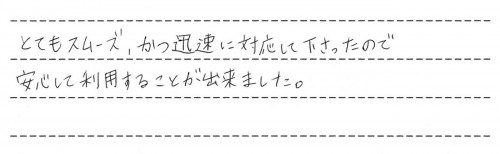 とてもスムーズ,かつ迅速に対応して下さったので
安心して利用することが出来ました。